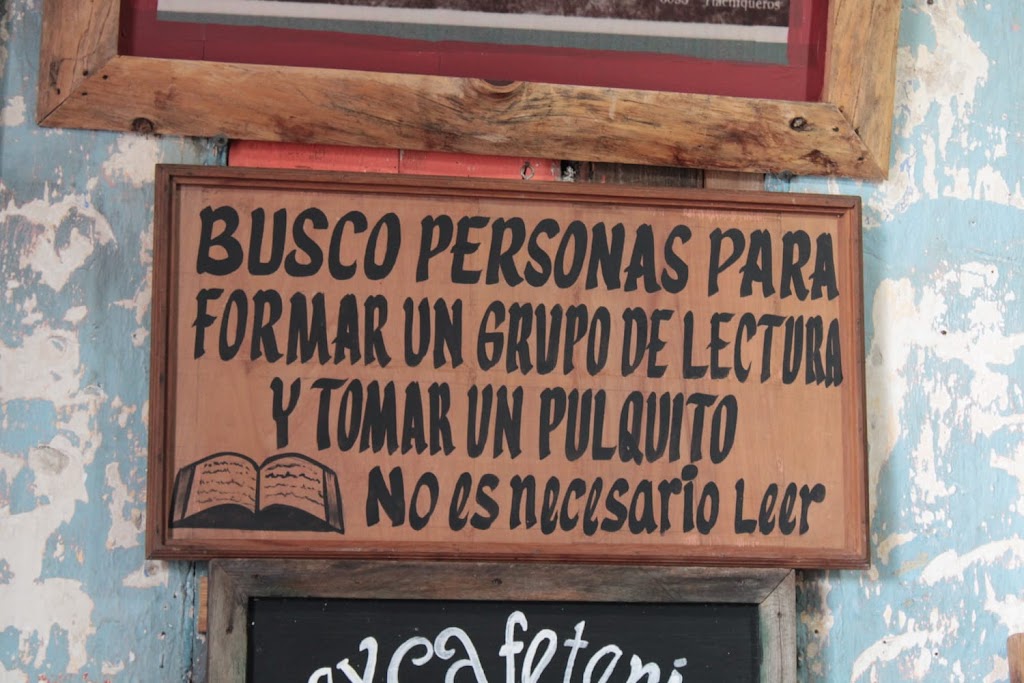 Tlachiqueros
BUSCO PERSONAS PARA
FORMAR UN GRUPO DE LECTURA
Y TOMAR UN PULQUITO
No es necesario Leer